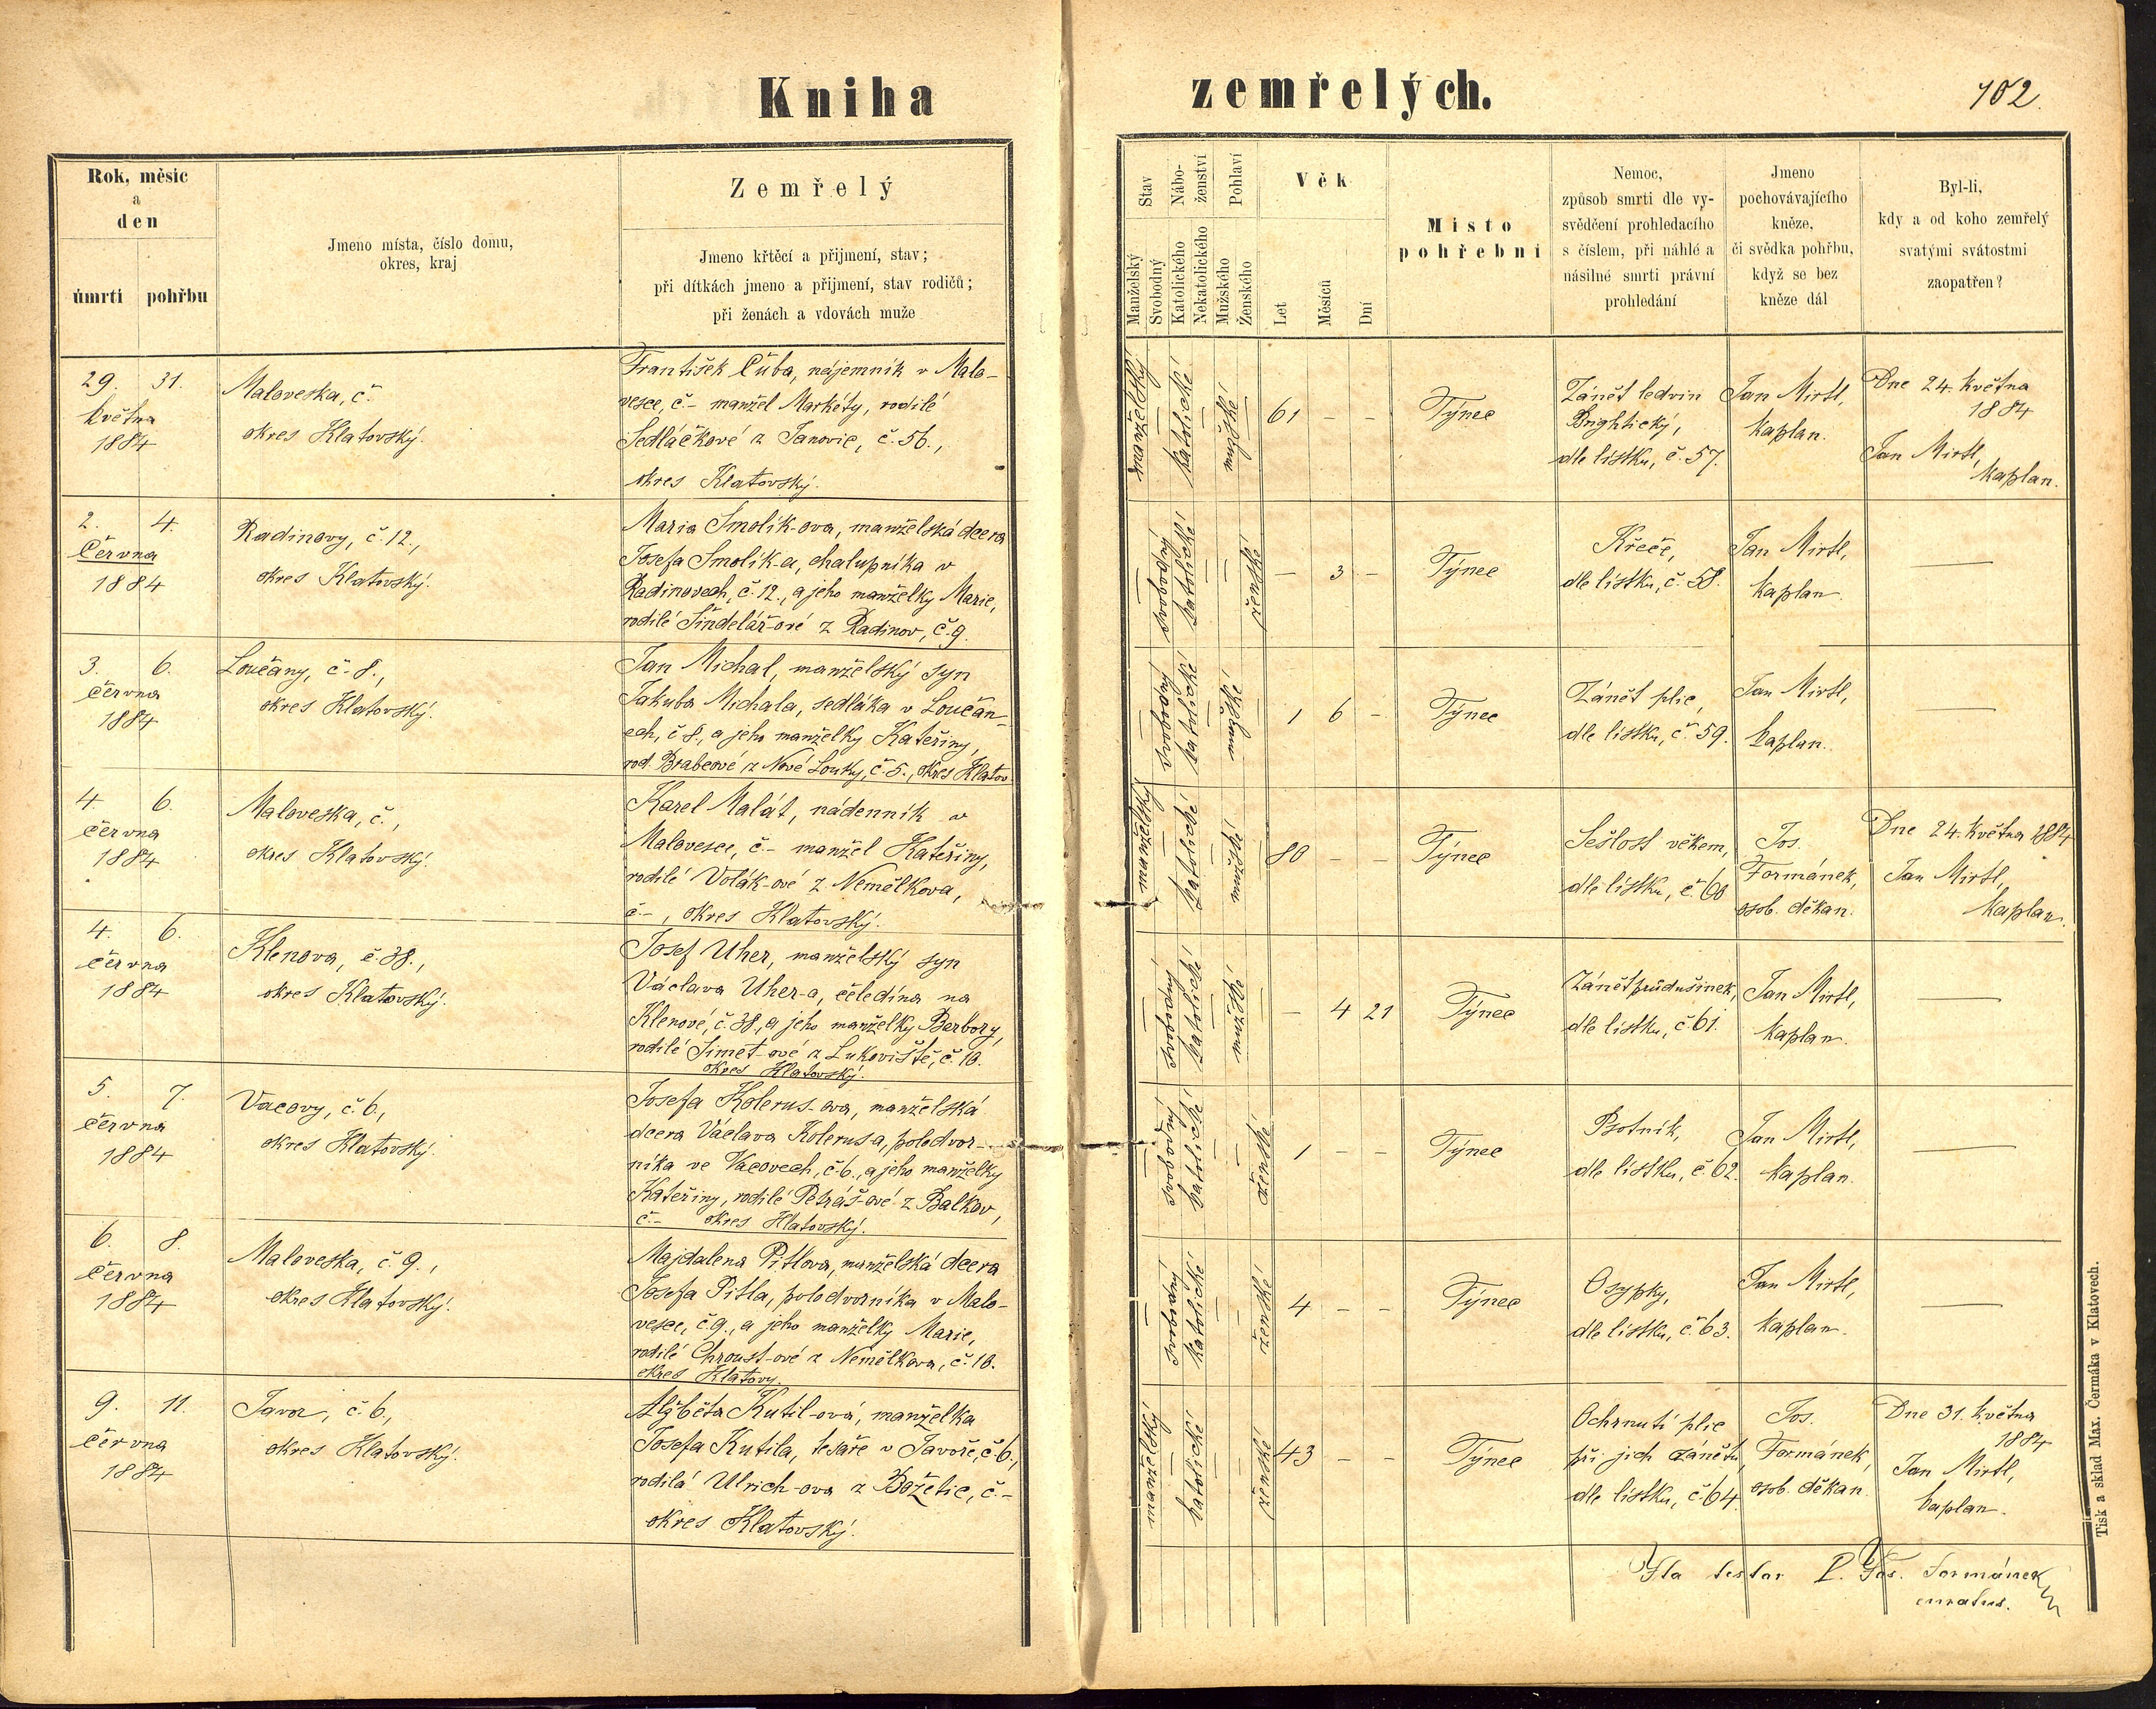 Kniha zemřelých.
102
Rok, měsíc
a
den
úmrtí pohřbu
Jmeno místa, číslo domu,
okres, kraj
Zemřelý
Jmeno křtěcí a přijmení, stav;
při dítkách jmeno a přijmení, stav rodičů;
při ženách a vdovách muže
Stav
Manželský
Svobodný
Nábo-
ženství
Katolického
Nekatolického
Pohlaví
Mužského
Ženského
Věk
Let
Měsíců
Dní
Místo
pohřební
Nemoc,
způsob smrti dle vy-
svědčení prohledacího
s číslem, při náhlé a
násilné smrti právní
prohledání
Jmeno
pochovávajícího
kněze,
či svědka pohřbu,
když se bez
kněze dál
Byl-li,
kdy a od koho zemřelý
svatými svátostmi
zaopatřen?
29. 31.
května
1884
Maloveska, č.
okres Klatovský.
František Cůba, nájemník v Malo-
vesce, č.- manžel Markéty, rodilé
Sedláčkové z Janovic, č. 56.,
okres Klatovský.
manželský
—
katolické
—
mužské
—
61 - -
Týnec
Zánět ledvin
Brightický,
dle lístku, č. 57.
Jan Mirtl,
kaplan.
Dne 24. května
1884
Jan Mirtl,
kaplan.
2. 4.
Června
1884
Radinovy, č. 12.,
okres Klatovský.
Maria Smolík-ova, manželská dcera
Josefa Smolík-a, chalupníka v
Radinovech, č. 12., a jeho manželky Marie,
rodilé Šindelář-ové z Radinov, č. 9.
—
svobodný
katolické
—
—
ženské
- 3 -
Týnec
Křeče,
dle lístku, č. 58.
Jan Mirtl,
kaplan.
—
3. 6.
června
1884
Loučany, č. 8.,
okres Klatovský.
Jan Michal, manželský syn
Jakuba Michala, sedláka v Loučan-
ech, č. 8., a jeho manželky Kateřiny,
rod. Brabcové z Nové Louky, č. 5., okres Klatov.
—
svobodný
katolické
—
mužské
—
1 6 -
Týnec
Zánět plic,
dle lístku, č. 59.
Jan Mirtl,
kaplan.
—
4 6.
června
1884
Maloveska, č.,
okres Klatovský.
Karel Malát, nádenník v
Malovesce, č.- manžel Kateřiny,
rodilé Volák-ové z Nemělkova,
č.-, okres Klatovský.
manželský
—
katolické
—
mužské
—
80 - -
Týnec
Sešlost věkem,
dle lístku, č. 60
Jos.
Formánek,
osob. děkan.
Dne 24. května 1884
Jan Mirtl,
kaplan.
4. 6.
června
1884
Klenova, č. 38.,
okres Klatovský.
Josef Uher, manželský syn
Václava Uher-a, čeledína na
Klenové, č. 38., a jeho manželky Barbory,
rodilé Šimet-ové z Lukoviště, č. 10.
okres Klatovský.
—
svobodný
katolické
—
mužské
—
- 4 21
Týnec
Zánět průdušinek,
dle lístku, č. 61.
Jan Mirtl,
kaplan.
—
5. 7.
června
1884
Vacovy, č. 6.,
okres Klatovský.
Josefa Kolerus-ova, manželská
dcera Václava Kolerusa, poledvor-
níka ve Vacovech, č. 6., a jeho manželky
Kateřiny, rodilé Petráš-ové z Balkov,
č.- okres Klatovský.
—
svobodný
katolické
—
—
ženské
1 - -
Týnec
Psotník,
dle lístku, č. 62.
Jan Mirtl,
kaplan.
—
6. 8.
června
1884
Maloveska, č. 9.,
okres Klatovský.
Majdalena Pitlova, manželská dcera
Josefa Pitla, polodvorníka v Malo-
vesce, č. 9., a jeho manželky Marie,
rodilé Chroust-ové z Nemělkova, č. 10.
okres Klatovy.
—
svobodný
katolické
—
—
ženské
4 - -
Týnec
Osypky,
dle lístku, č. 63.
Jan Mirtl,
kaplan.
—
9. 11.
června
1884
Javor, č. 6.,
okres Klatovský.
Alžběta Kutil-ová, manželka
Josefa Kutila, tesaře v Javoře, č. 6.,
rodilá Ulrich-ova z Božetic, č.-
okres Klatovský.
manželský
—
katolické
—
—
ženské
43 - -
Týnec
Ochrnutí plic
při jich zánětu,
dle lístku, č. 64.
Jos.
Formánek,
osob. děkan.
Dne 31. května
1884
Jan Mirtl,
kaplan.
Ita testor P. Jos. Formánek
curatus.
Tisk a sklad Max. Čermáka v Klatovech.